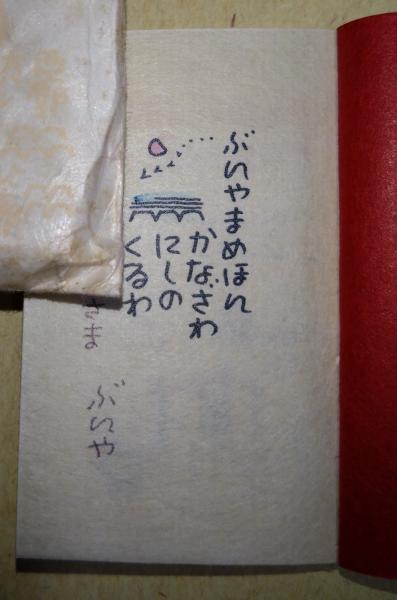 ぶいやまめほん
かなざわ
にしの
くるわ
ぶいや